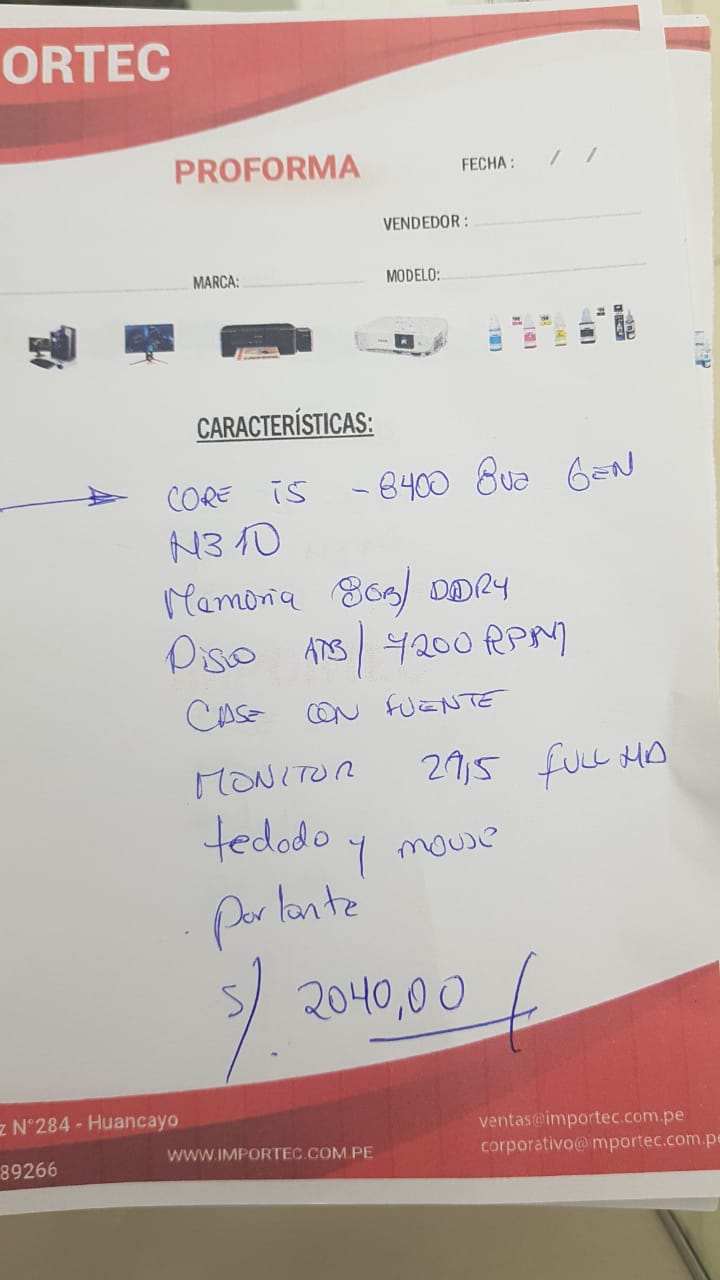 ORTEC
PROFORMA
FECHA : / /
VENDEDOR :
MARCA:
MODELO:
CARACTERÍSTICAS:
CORE i5 - 8400 8va GEN
H310
Memoria 8GB/ DDR4
Disco 1TB/ 7200 RPM
CASE CON FUENTE
MONITOR 21,5 FULL HD
teclado y mouse
parlante
S/. 2040,00
z N°284 - Huancayo
89266
WWW.IMPORTEC.COM.PE
ventas@importec.com.pe
corporativo@importec.com.p